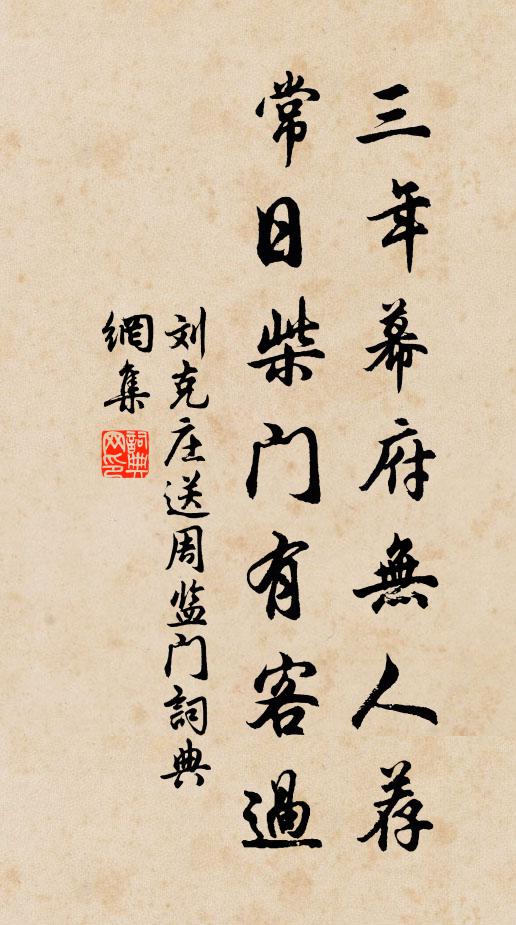 三年幕府無人荐
常日柴门有客過
刘克庄送周监门詞典
網集
詞典
网印